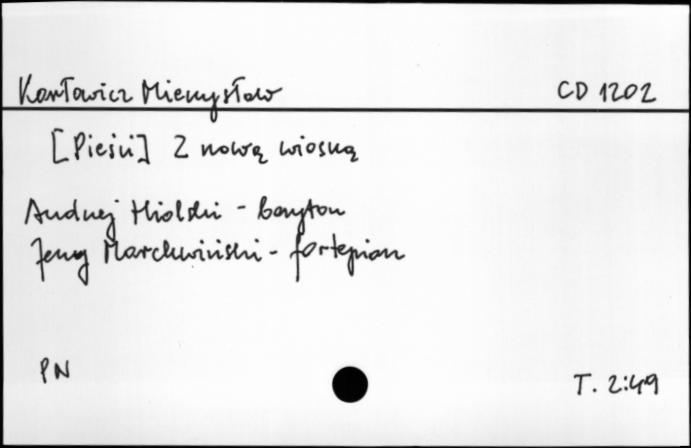 Karłowicz Mieczysław CD 1202
[Pieśni] Z nową wiosną
Andrzej Hiolski - baryton
Jerzy Marchwiński - fortepian
PN T. 2:49